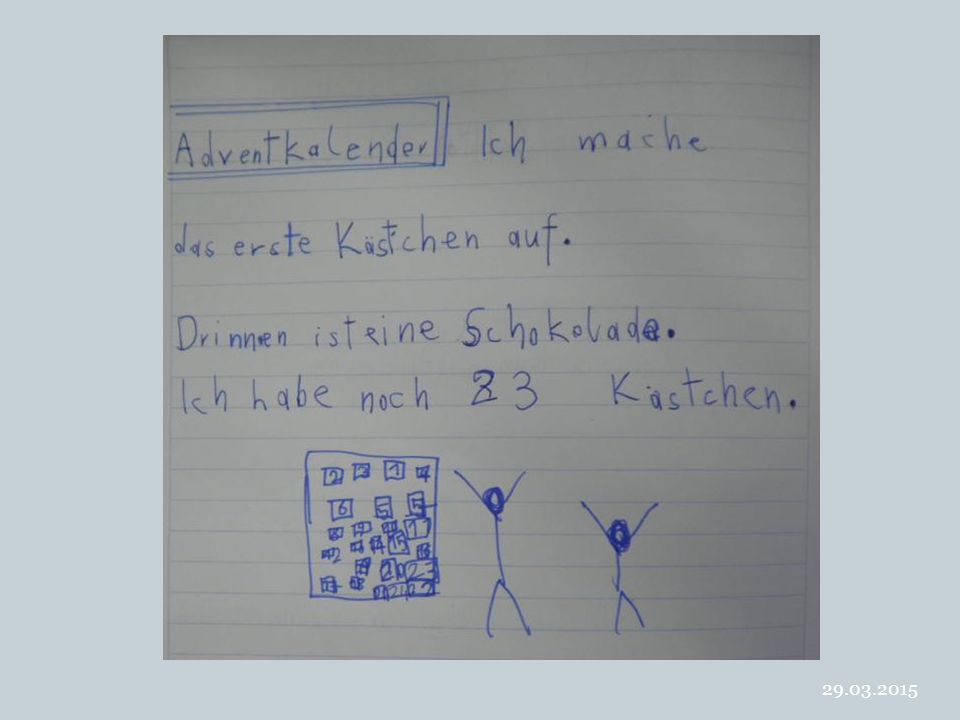 Adventkalender Ich mache
das erste Kästchen auf.
Drinnen ist eine Schokolade.
Ich habe noch 23 Kästchen.
2 3 1 4
6 5
29.03.2015